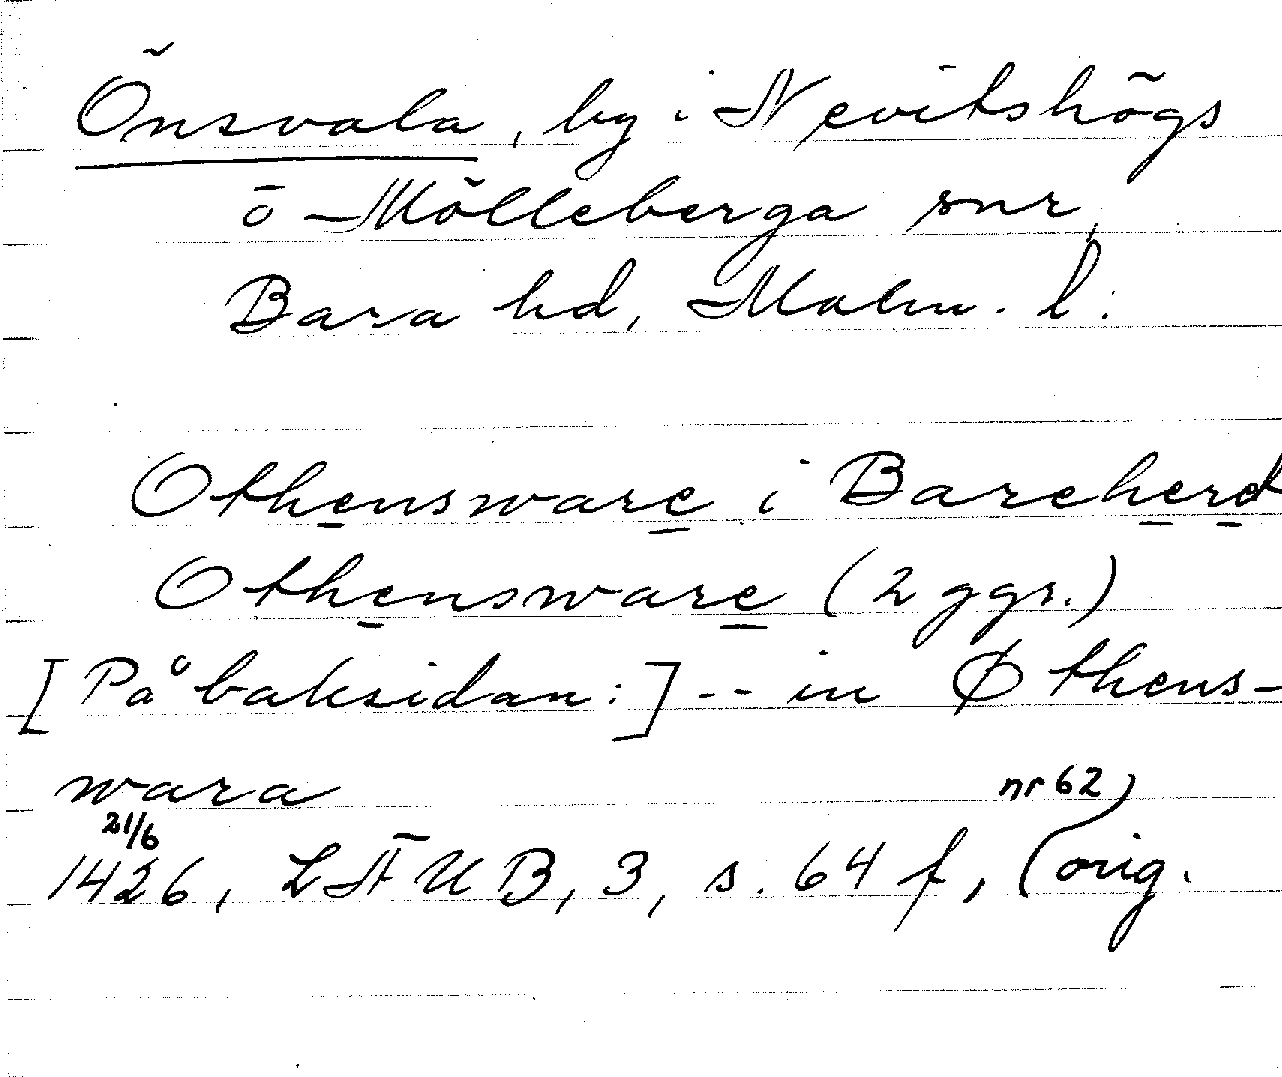 Önsvala, by i Nevitshögs
o Mölleberga snr,
Bara hd, Malm. l.
Othensware i Bareherd
Othensware (2 ggr.)
[På baksidan:] -- in Øthens-
wara
nr 62
21/6
1426, LÄUB, 3, s. 64 f, (orig.